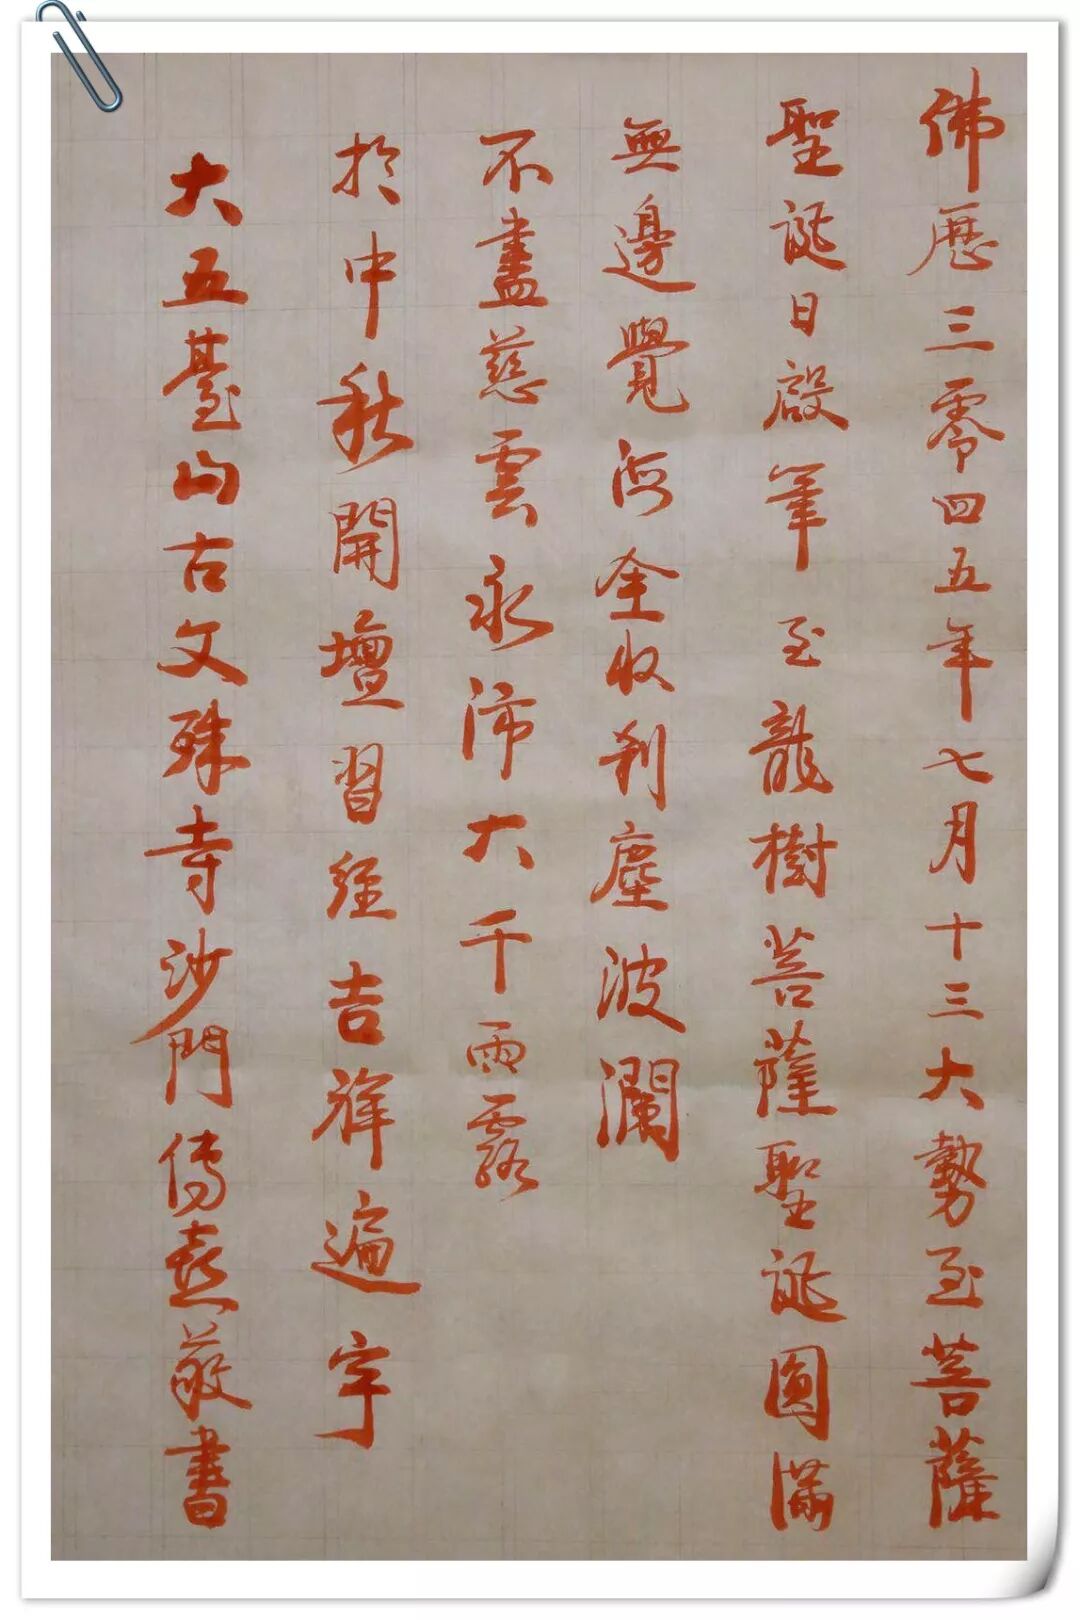 佛曆三零四五年七月十三大勢至菩薩
聖誕日啟筆至龍樹菩薩聖誕圓滿
無邊覺海全收剎塵波瀾
不盡慈雲永沛大千雨露
於中秋開壇習經吉祥遍宇
大五臺山古文殊寺沙門傳熹敬書